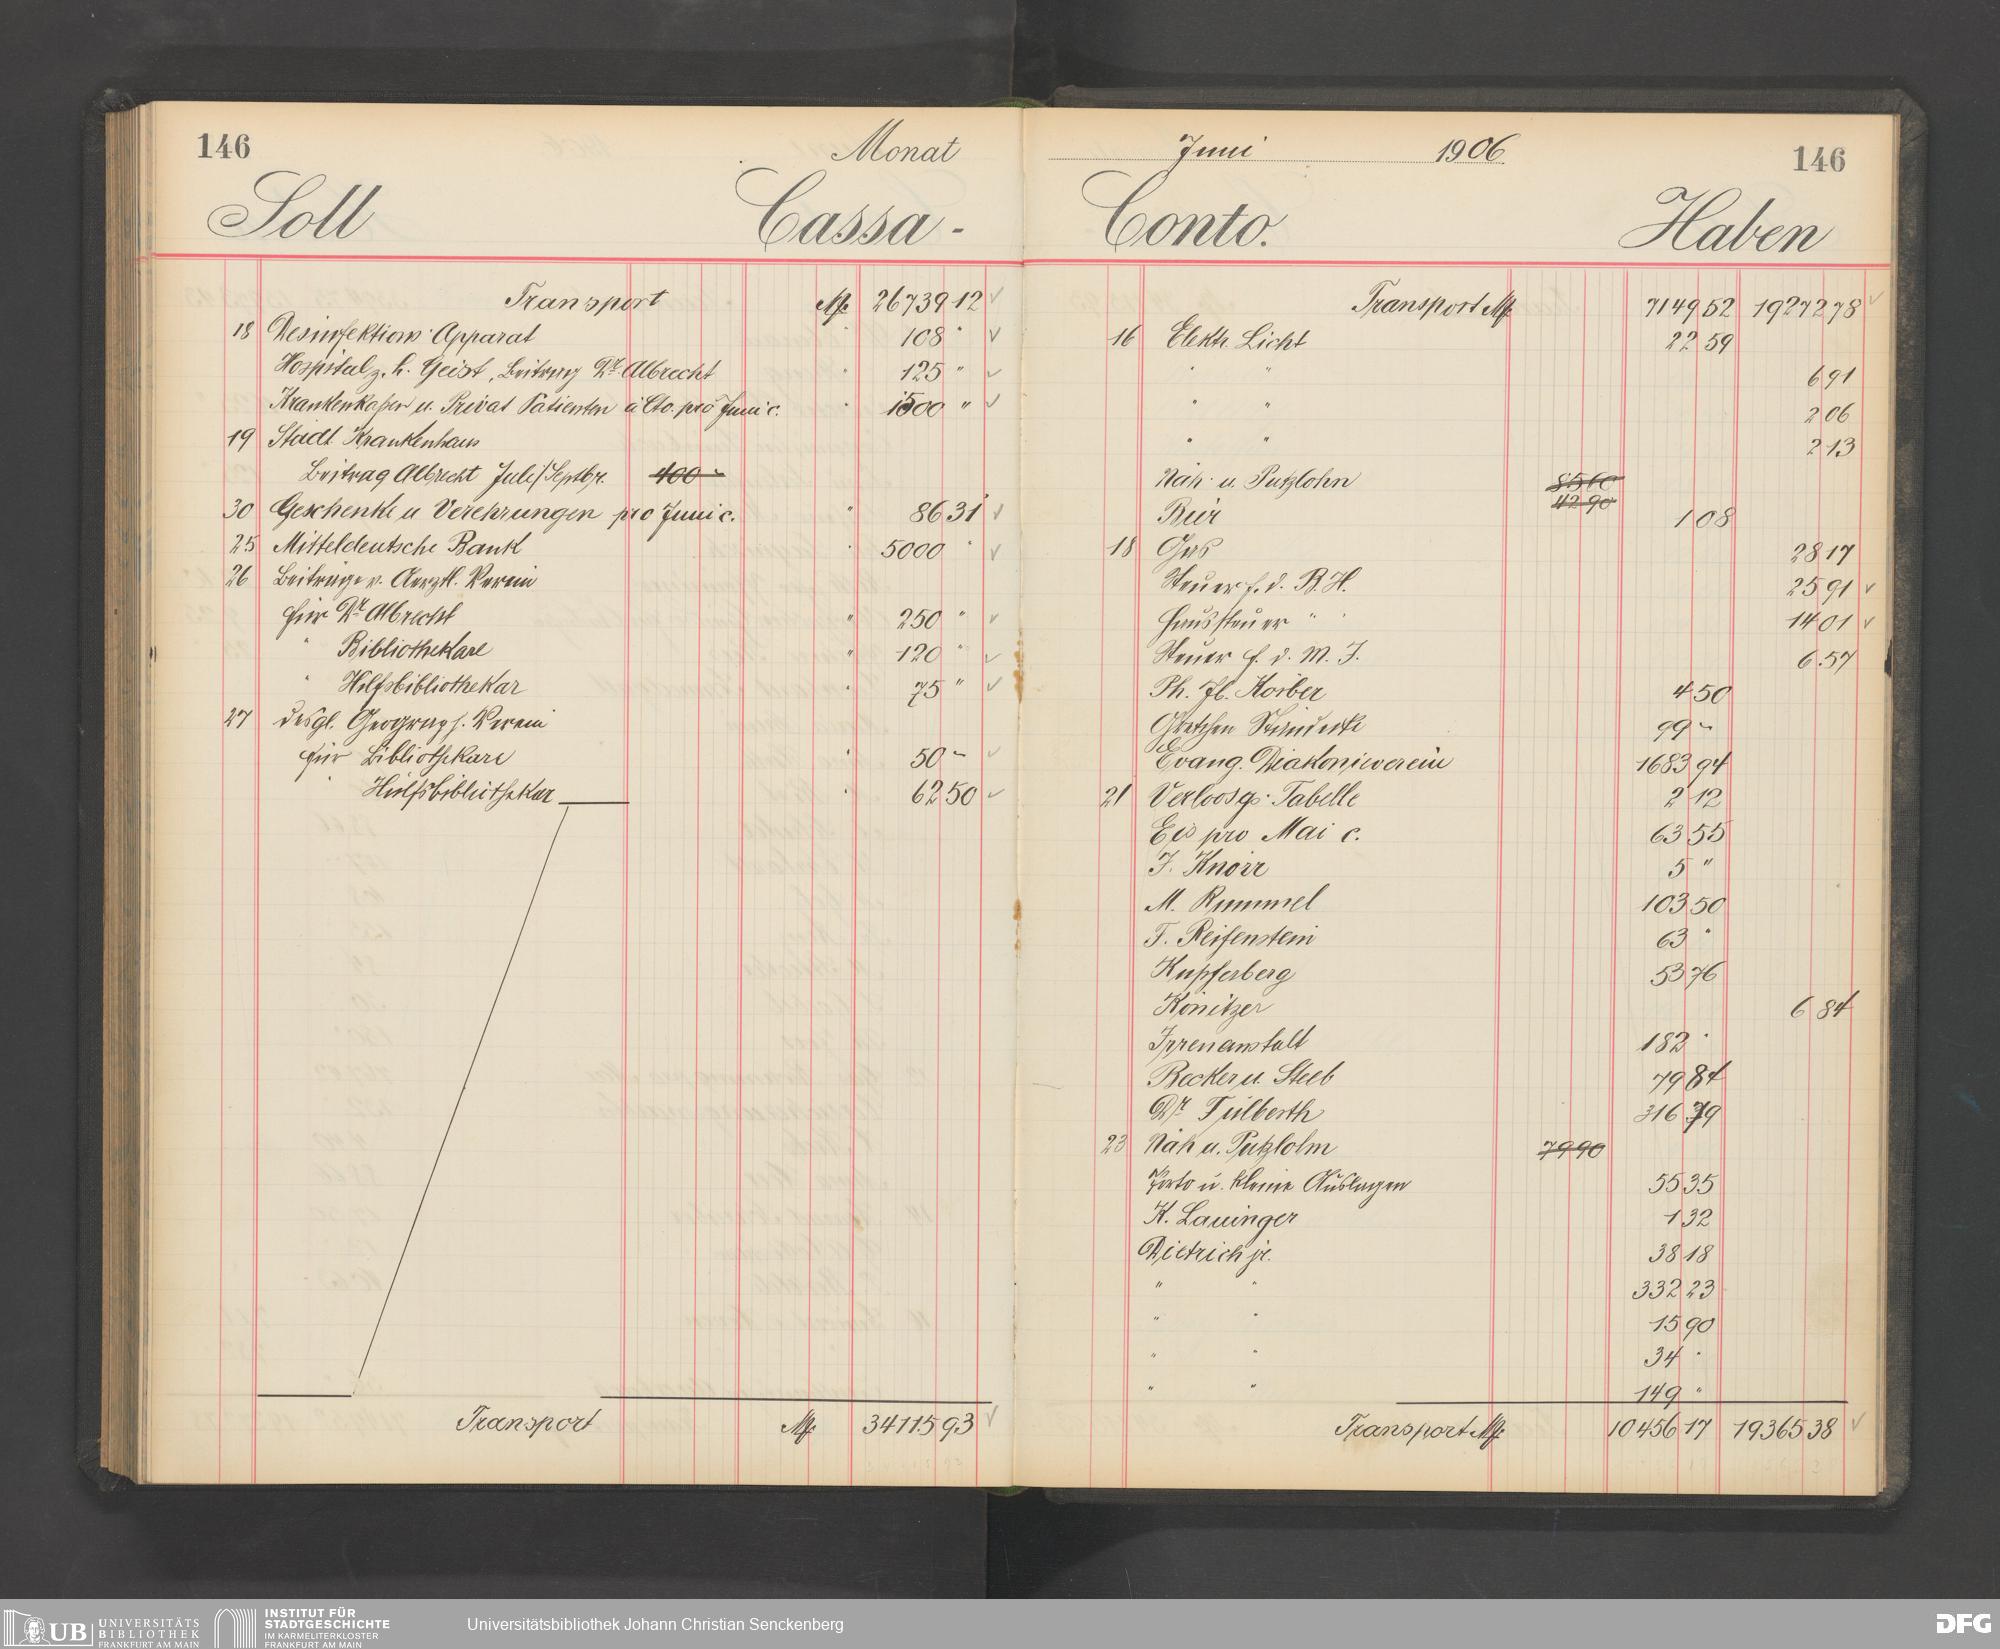 146 Monat
Soll Cassa-
Transport M 26739 12
18 Desinfektions-Apparat 108 "
Hospital z. h. Geist, Beitrag Dr. Albrecht " 125 "
Krankenkassen u. Privat Patienten à Cto. pro Juni c. " 1500 "
19 Städt. Krankenhaus
Beitrag Albrecht Juli/Septbr. 400 -
30 Geschenke u Verehrungen pro Juni c. " 86 31
25 Mitteldeutsche Bank " 5000 "
26 Beiträge v. Aerztl. Verein
für Dr. Albrecht " 250 "
" Bibliothekare " 120 "
" Hilfsbibliothekar " 75 "
27 desgl. Geograph. Verein
für Bibliothekare " 50 -
" Hülfsbibliothekar " 62 50
Transport M 34115 93
Juni 1906 146
Conto. Haben
Transport M 7149 52 19272 78
16 Elektr. Licht 22 59
" " 6 91
" " 2 06
" " 2 13
Näh- u. Putzlohn 85 60
42 90
Bier 1 08
18 Gas 28 17
Steuer f. d. B. H. 25 91
Haussteuer " " 14 01
Steuer f. d. M. J. 6.57
Ph. Jb. Körber 4 50
Gretchen 99 -
Evang. Diakonieverein 1683 94
21 Verloosgs-Tabelle 2 12
Eis pro Mai c. 63 55
F. Knörr 5 "
M. Rummel 103 50
F. Reifenstein 63 "
Kupferberg 53 76
Könitzer 6 84
Irrenanstalt 182 "
Becker u. Steeb 79 84
Dr. Fülberth 316 79
23 Näh u. Putzlohn 79 90
Porto u. kleine Auslagen 55 35
K. Lauinger 1 32
Dietrich jr. 38 18
" " 332 23
" " 15 90
" " 34 "
" " 149 "
Transport M 10456 17 19365 38
UB UNIVERSITÄTS
BIBLIOTHEK
FRANKFURT AM MAIN
INSTITUT FÜR
STADTGESCHICHTE
IM KARMELITERKLOSTER
FRANKFURT AM MAIN
Universitätsbibliothek Johann Christian Senckenberg
DFG